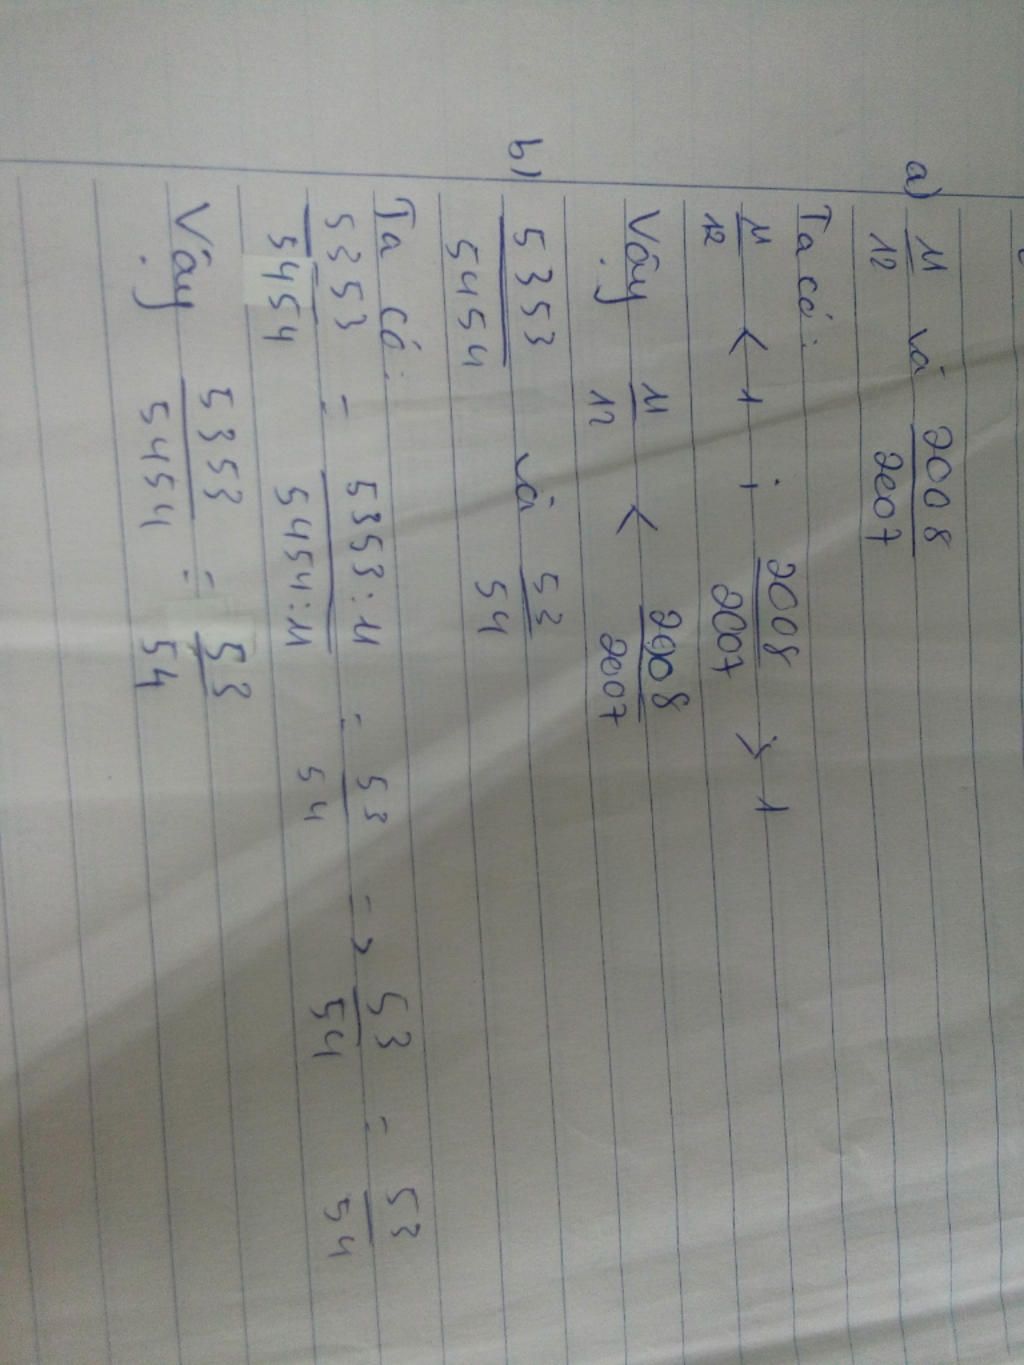 a) 11/12 và 2008/2007
Ta có:
11/12 < 1 ; 2008/2007 > 1
Vậy 11/12 < 2008/2007
b) 5353/5454 và 53/54
Ta có:
5353/5454 = 5353:11/5454:11 = 53/54 => 53/54 = 53/54
Vậy 5353/5454 = 53/54